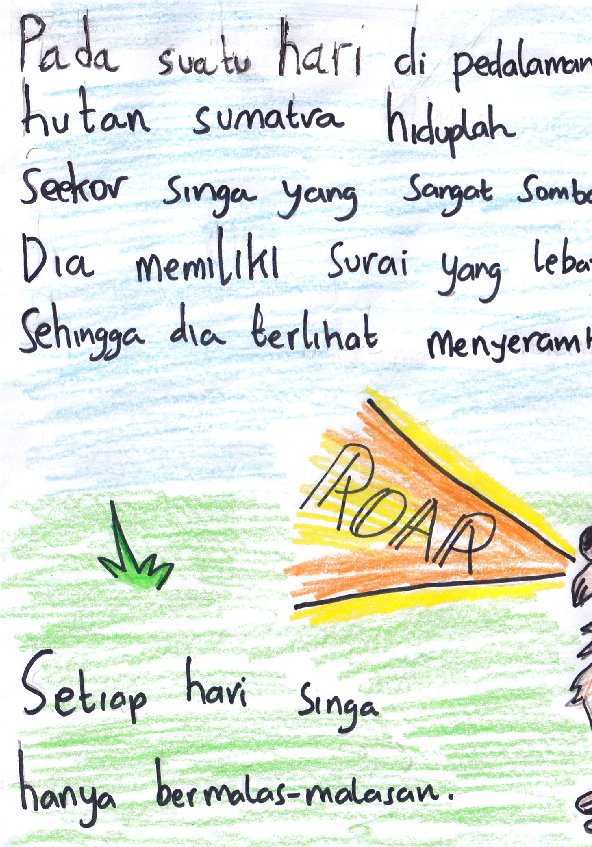 Pada suatu hari di pedalaman
hutan sumatra hiduplah
seekor singa yang sangat
Dia memiliki surai yang
Sehingga dia terlihat
ROAR
Setiap hari singa
hanya bermalas-malasan.